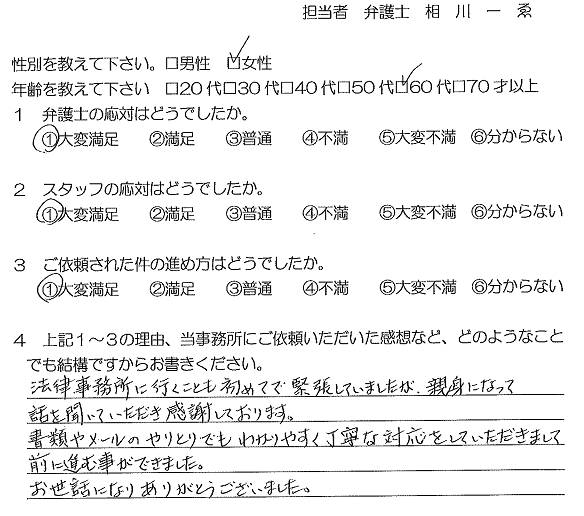 担当者 弁護士 相川一ゑ
性別を教えて下さい。☐男性 ☑女性
年齢を教えて下さい ☐20代☐30代☐40代☐50代☑60代☐70才以上
1 弁護士の応対はどうでしたか。
①大変満足 ②満足 ③普通 ④不満 ⑤大変不満 ⑥分からない
2 スタッフの応対はどうでしたか。
①大変満足 ②満足 ③普通 ④不満 ⑤大変不満 ⑥分からない
3 ご依頼された件の進め方はどうでしたか。
①大変満足 ②満足 ③普通 ④不満 ⑤大変不満 ⑥分からない
4 上記1～3の理由、当事務所にご依頼いただいた感想など、どのようなこと
でも結構ですからお書きください。
法律事務所に行くことも初めてで緊張していましたが、親身になって
話を聞いていただき感謝しております。
書類やメールのやりとりでもわかりやすく丁寧な対応をしていただきまして
前に進む事ができました。
お世話になりありがとうございました。